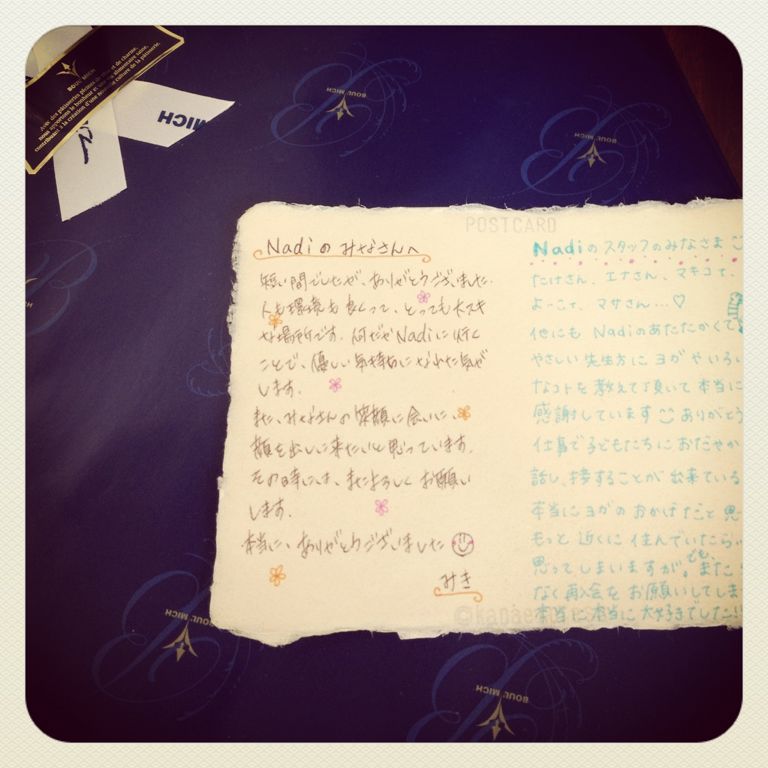 BOUL'MICH
Avec des pâtisseries pleines de goût et de charme,
MICH
BOUL'MICH
BOUL'MICH
POSTCARD
Nadiのみなさんへ
短い間でしたが、ありがとうございました。
人も環境も良くって、とっても大スキ
な場所です。何だかNadiに行く
ことで、優しい気持ちになれた気が
します。
また、みなさんの笑顔に会いに、
顔を出しに来たいと思っています。
その時には、またよろしくお願い
します。
本当に、ありがとうございました
みき
Nadiのスタッフのみなさま
たけさん、エナさん、マキコて、
よーこて、マサさん…♡
他にも Nadiのあたたかくて
やさしい先生方に ヨガやいろい
なコトを教えて頂いて本当に
感謝しています ありがとう
仕事で子どもたちにおだやか
話し、接することが出来ている
本当にヨガのおかげだと思
もっと近くに住んでいたら
思ってしまいますが。でも、また
なく再会をお願いしてしま
本当に本当に大好きでした!!
BOUL'MICH
BOUL'MICH